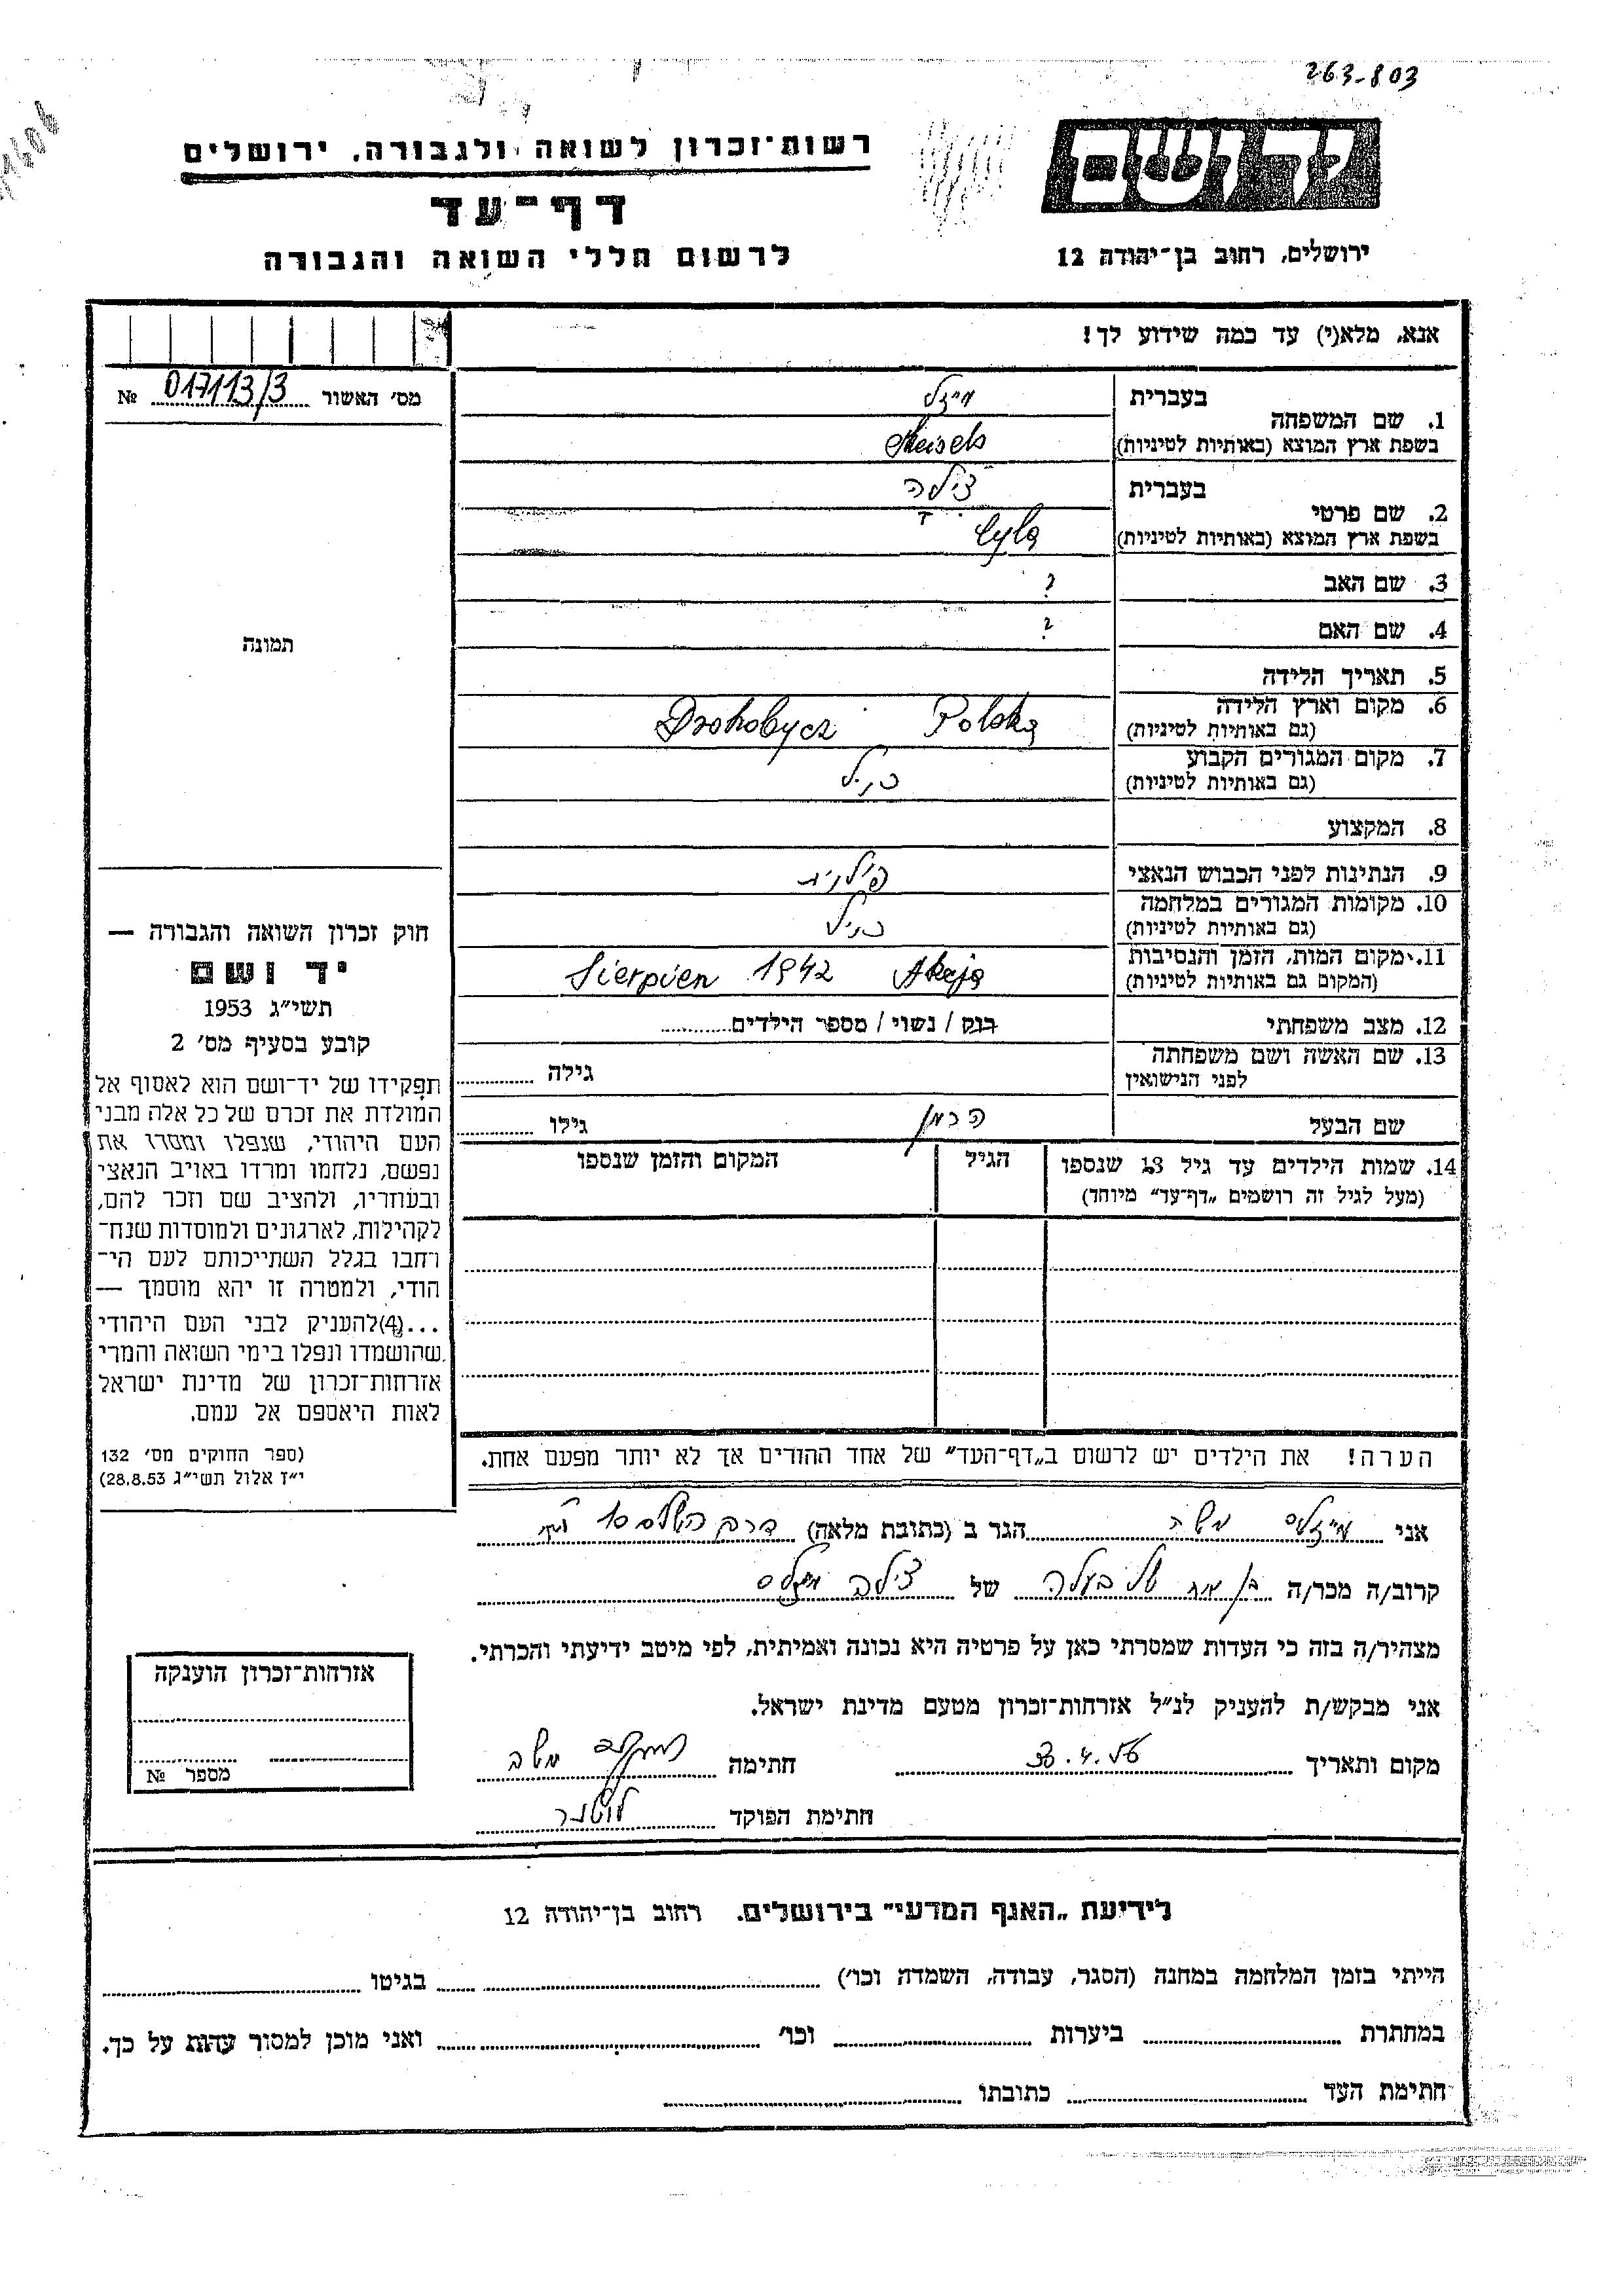 263-803
יד ושם
רשות־זכרון לשואה ולגבורה, ירושלים
דף־עד
לרשום חללי השואה והגבורה
ירושלים, רחוב בן־יהודה 12
אנא, מלא(י) עד כמה שידוע לך!
מס׳ האשור 017113/3 №
1. שם המשפחה
בעברית מייזלס
בשפת ארץ המוצא (באותיות לטיניות) Meisels
2. שם פרטי
בעברית צילה
בשפת ארץ המוצא (באותיות לטיניות) Cyla
3. שם האב ?
4. שם האם ?
5. תאריך הלידה
6. מקום וארץ הלידה
(גם באותיות לטיניות) Drohobycz Polska
7. מקום המגורים הקבוע
(גם באותיות לטיניות) כנ״ל
8. המקצוע
9. הנתינות לפני הכבוש הנאצי פולנית
10. מקומות המגורים במלחמה
(גם באותיות לטיניות) כנ״ל
11. מקום המות, הזמן והנסיבות
(המקום גם באותיות לטיניות) Sierpień 1942 Akcja
12. מצב משפחתי רווק / נשוי / מספר הילדים
13. שם האשה ושם משפחתה
לפני הנישואין גילה
שם הבעל הרמן גילו
14. שמות הילדים עד גיל 13 שנספו הגיל המקום והזמן שנספו
(מעל לגיל זה רושמים „דף־עד״ מיוחד)
הערה! את הילדים יש לרשום ב„דף־העד״ של אחד ההורים אך לא יותר מפעם אחת.
תמונה
חוק זכרון השואה והגבורה —
יד ושם
תשי״ג 1953
קובע בסעיף מס׳ 2
תפקידו של יד־ושם הוא לאסוף אל
המולדת את זכרם של כל אלה מבני
העם היהודי, שנפלו ומסרו את
נפשם, נלחמו ומרדו באויב הנאצי
ובעוזריו, ולהציב שם וזכר להם,
לקהילות, לארגונים ולמוסדות שנח־
רחבו בגלל השתייכותם לעם הי־
הודי, ולמטרה זו יהא מוסמך —
...(4) להעניק לבני העם היהודי
שהושמדו ונפלו בימי השואה והמרי
אזרחות־זכרון של מדינת ישראל
לאות היאספם אל עמם.
(ספר החוקים מס׳ 132
י״ז אלול תשי״ג 28.8.53)
אני מייזלס משה הגר ב (כתובת מלאה) דרך השלום 10
קרוב/ה מכר/ה בן אח של בעלה של צילה מייזלס
מצהיר/ה בזה כי העדות שמסרתי כאן על פרטיה היא נכונה ואמיתית, לפי מיטב ידיעתי והכרתי.
אני מבקש/ת להעניק לנ״ל אזרחות־זכרון מטעם מדינת ישראל.
מקום ותאריך חתימה מייזלס משה
חתימת הפוקד
אזרחות־זכרון הוענקה
מספר №
לידיעת „האגף המדעי״ בירושלים, רחוב בן־יהודה 12
הייתי בזמן המלחמה במחנה (הסגר, עבודה, השמדה וכו׳) בגיטו
במחתרת ביערות וכו׳ ואני מוכן למסור עדות על כך.
חתימת העד כתובתו